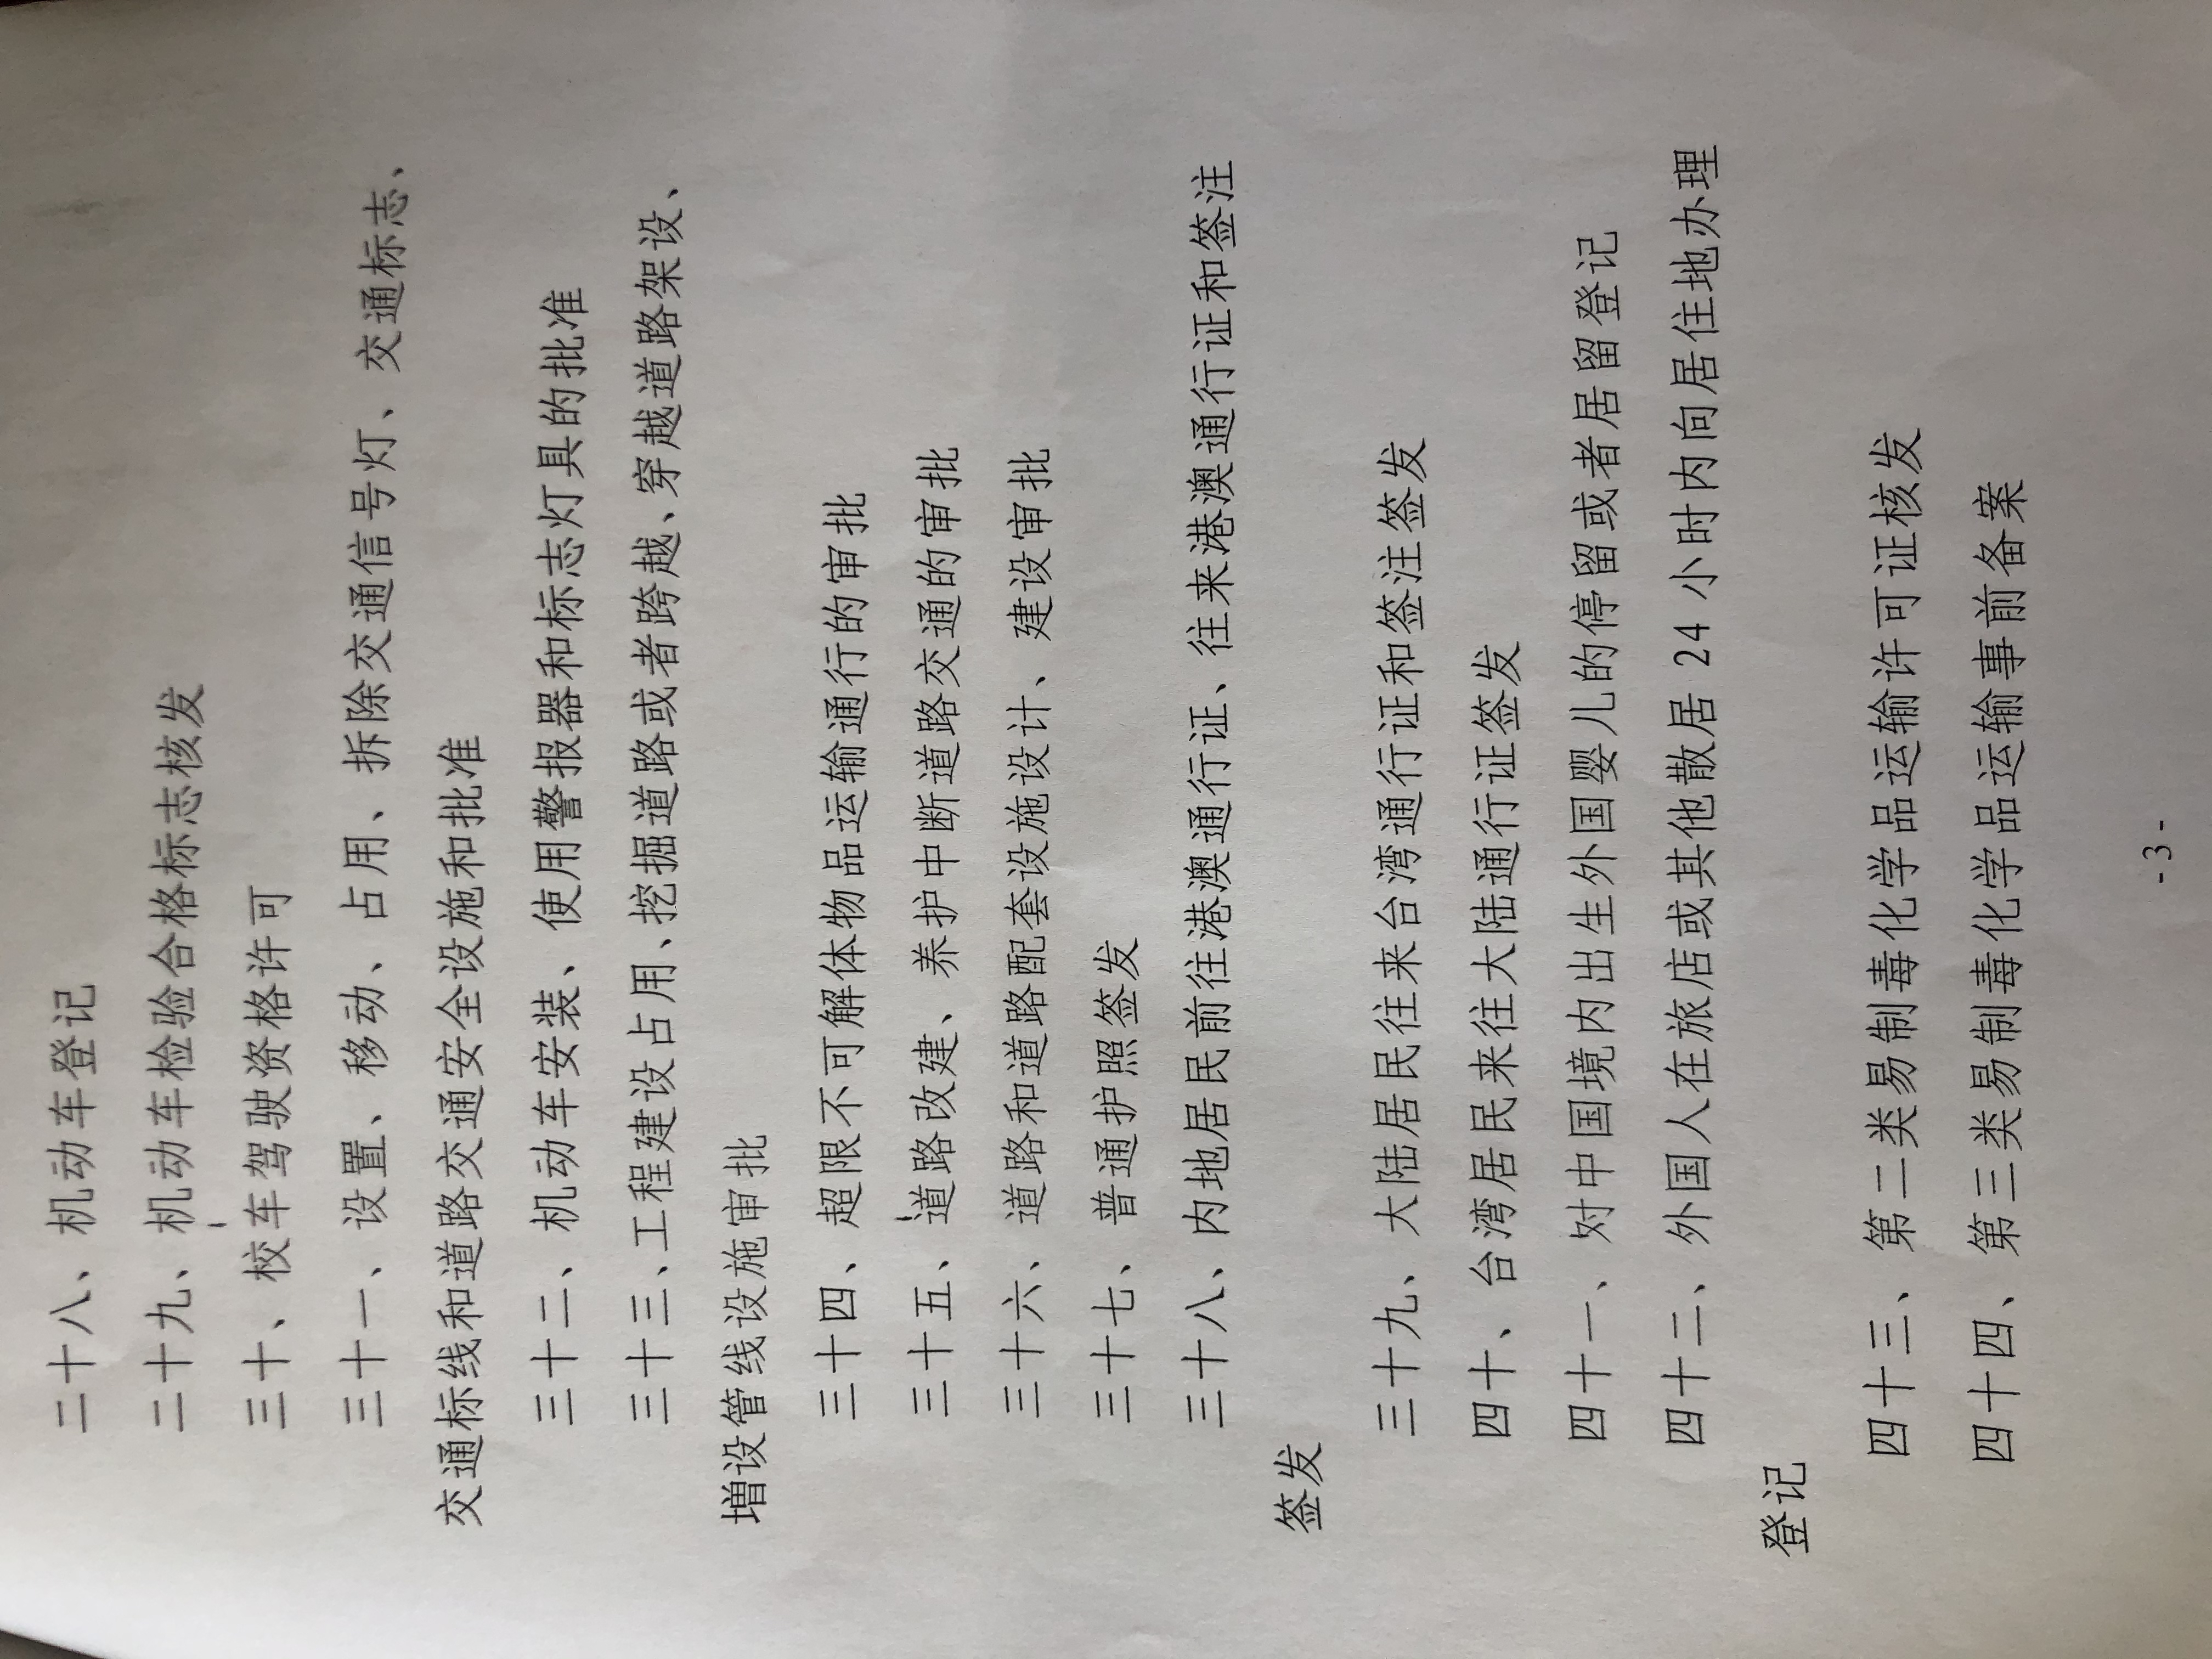 二十八、机动车登记
二十九、机动车检验合格标志核发
三十、校车驾驶资格许可
三十一、设置、移动、占用、拆除交通信号灯、交通标志、
交通标线和道路交通安全设施和批准
三十二、机动车安装、使用警报器和标志灯具的批准
三十三、工程建设占用、挖掘道路或者跨越、穿越道路架设、
增设管线设施审批
三十四、超限不可解体物品运输通行的审批
三十五、道路改建、养护中断道路交通的审批
三十六、道路和道路配套设施设计、建设审批
三十七、普通护照签发
三十八、内地居民前往港澳通行证、往来港澳通行证和签注
签发
三十九、大陆居民往来台湾通行证和签注签发
四十、台湾居民来往大陆通行证签发
四十一、对中国境内出生外国婴儿的停留或者居留登记
四十二、外国人在旅店或其他散居 24 小时内向居住地办理
登记
四十三、第二类易制毒化学品运输许可证核发
四十四、第三类易制毒化学品运输事前备案
- 3 -